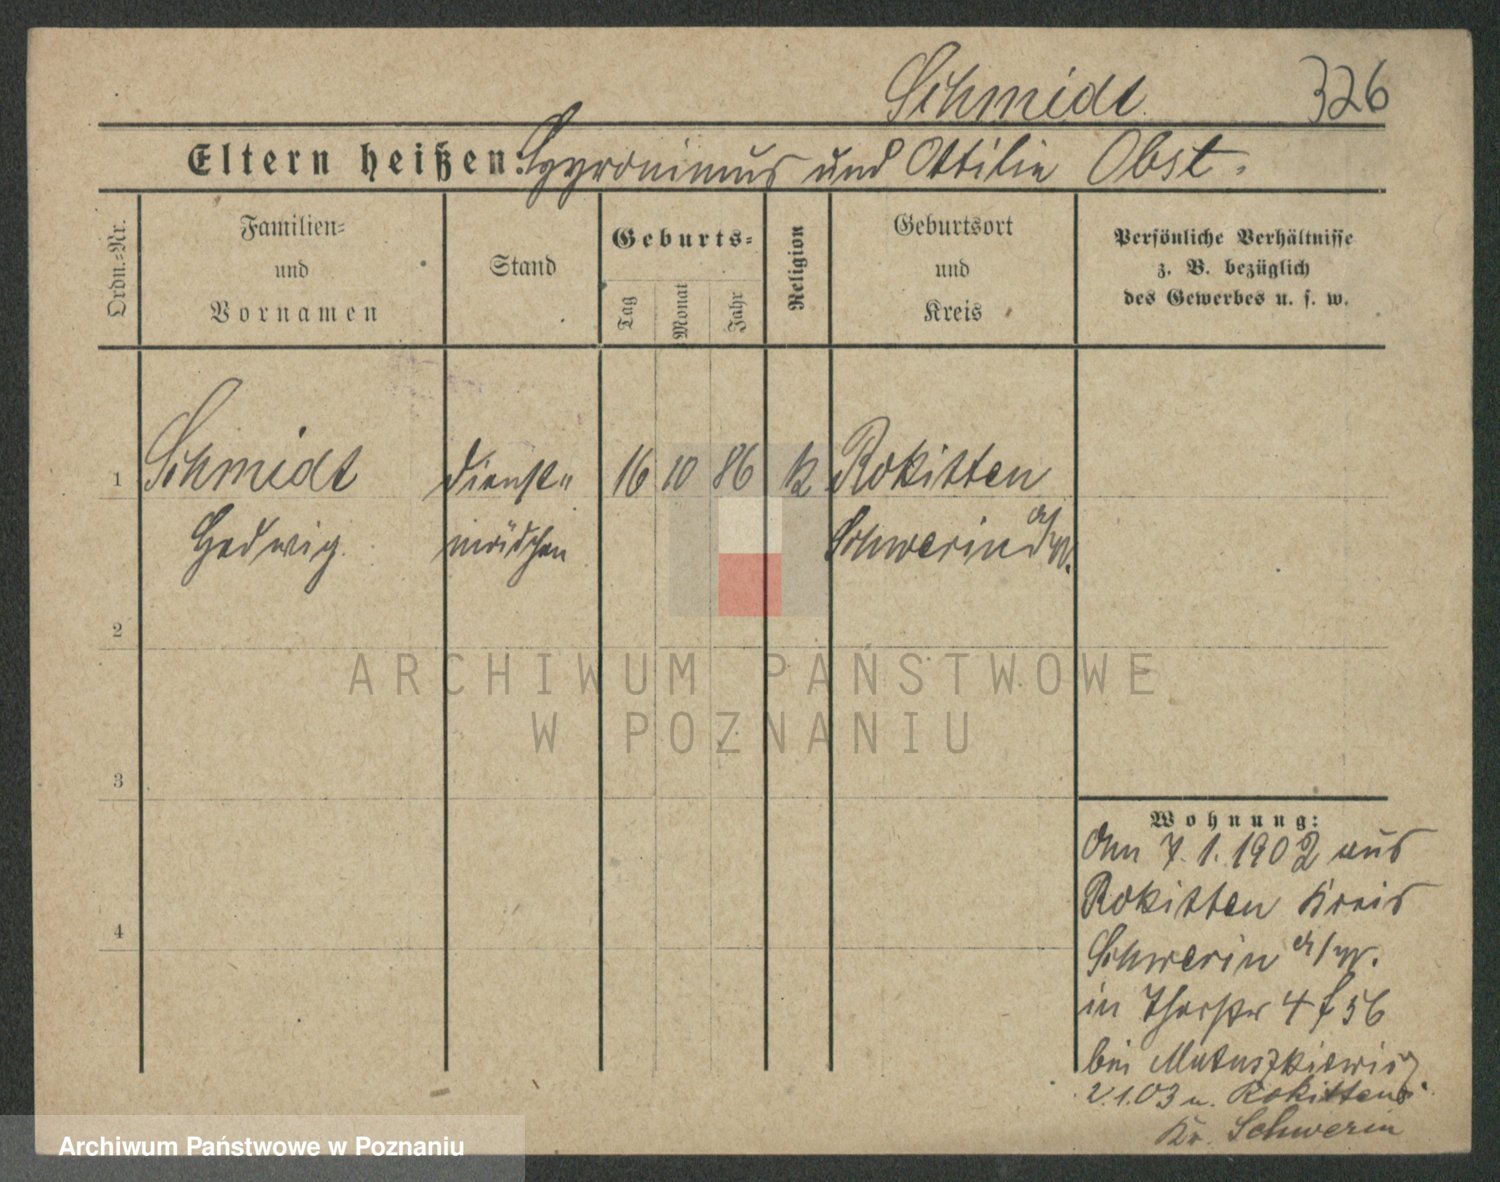 Schmidt 326
Eltern heißen: Hyronimus und Ottilie Obst.
Ordn.=Nr.
Familien=
und
Vornamen
Stand
Geburts=
Tag
Monat
Jahr
Religion
Geburtsort
und
Kreis
Persönliche Verhältnisse
z. B. bezüglich
des Gewerbes u. s. w.
1 Schmidt Dienst= 16 10 86 k Rokitten
Hedwig. mädchen Schwerin a/W.
2
3
4
Wohnung:
den 7.1.1902 aus
Rokitten Kreis
Schwerin a/W.
in 4 f 56
bei Matuszkiewicz
2.1.03 n. Rokitten
Kr. Schwerin
ARCHIWUM PAŃSTWOWE
W POZNANIU
Archiwum Państwowe w Poznaniu